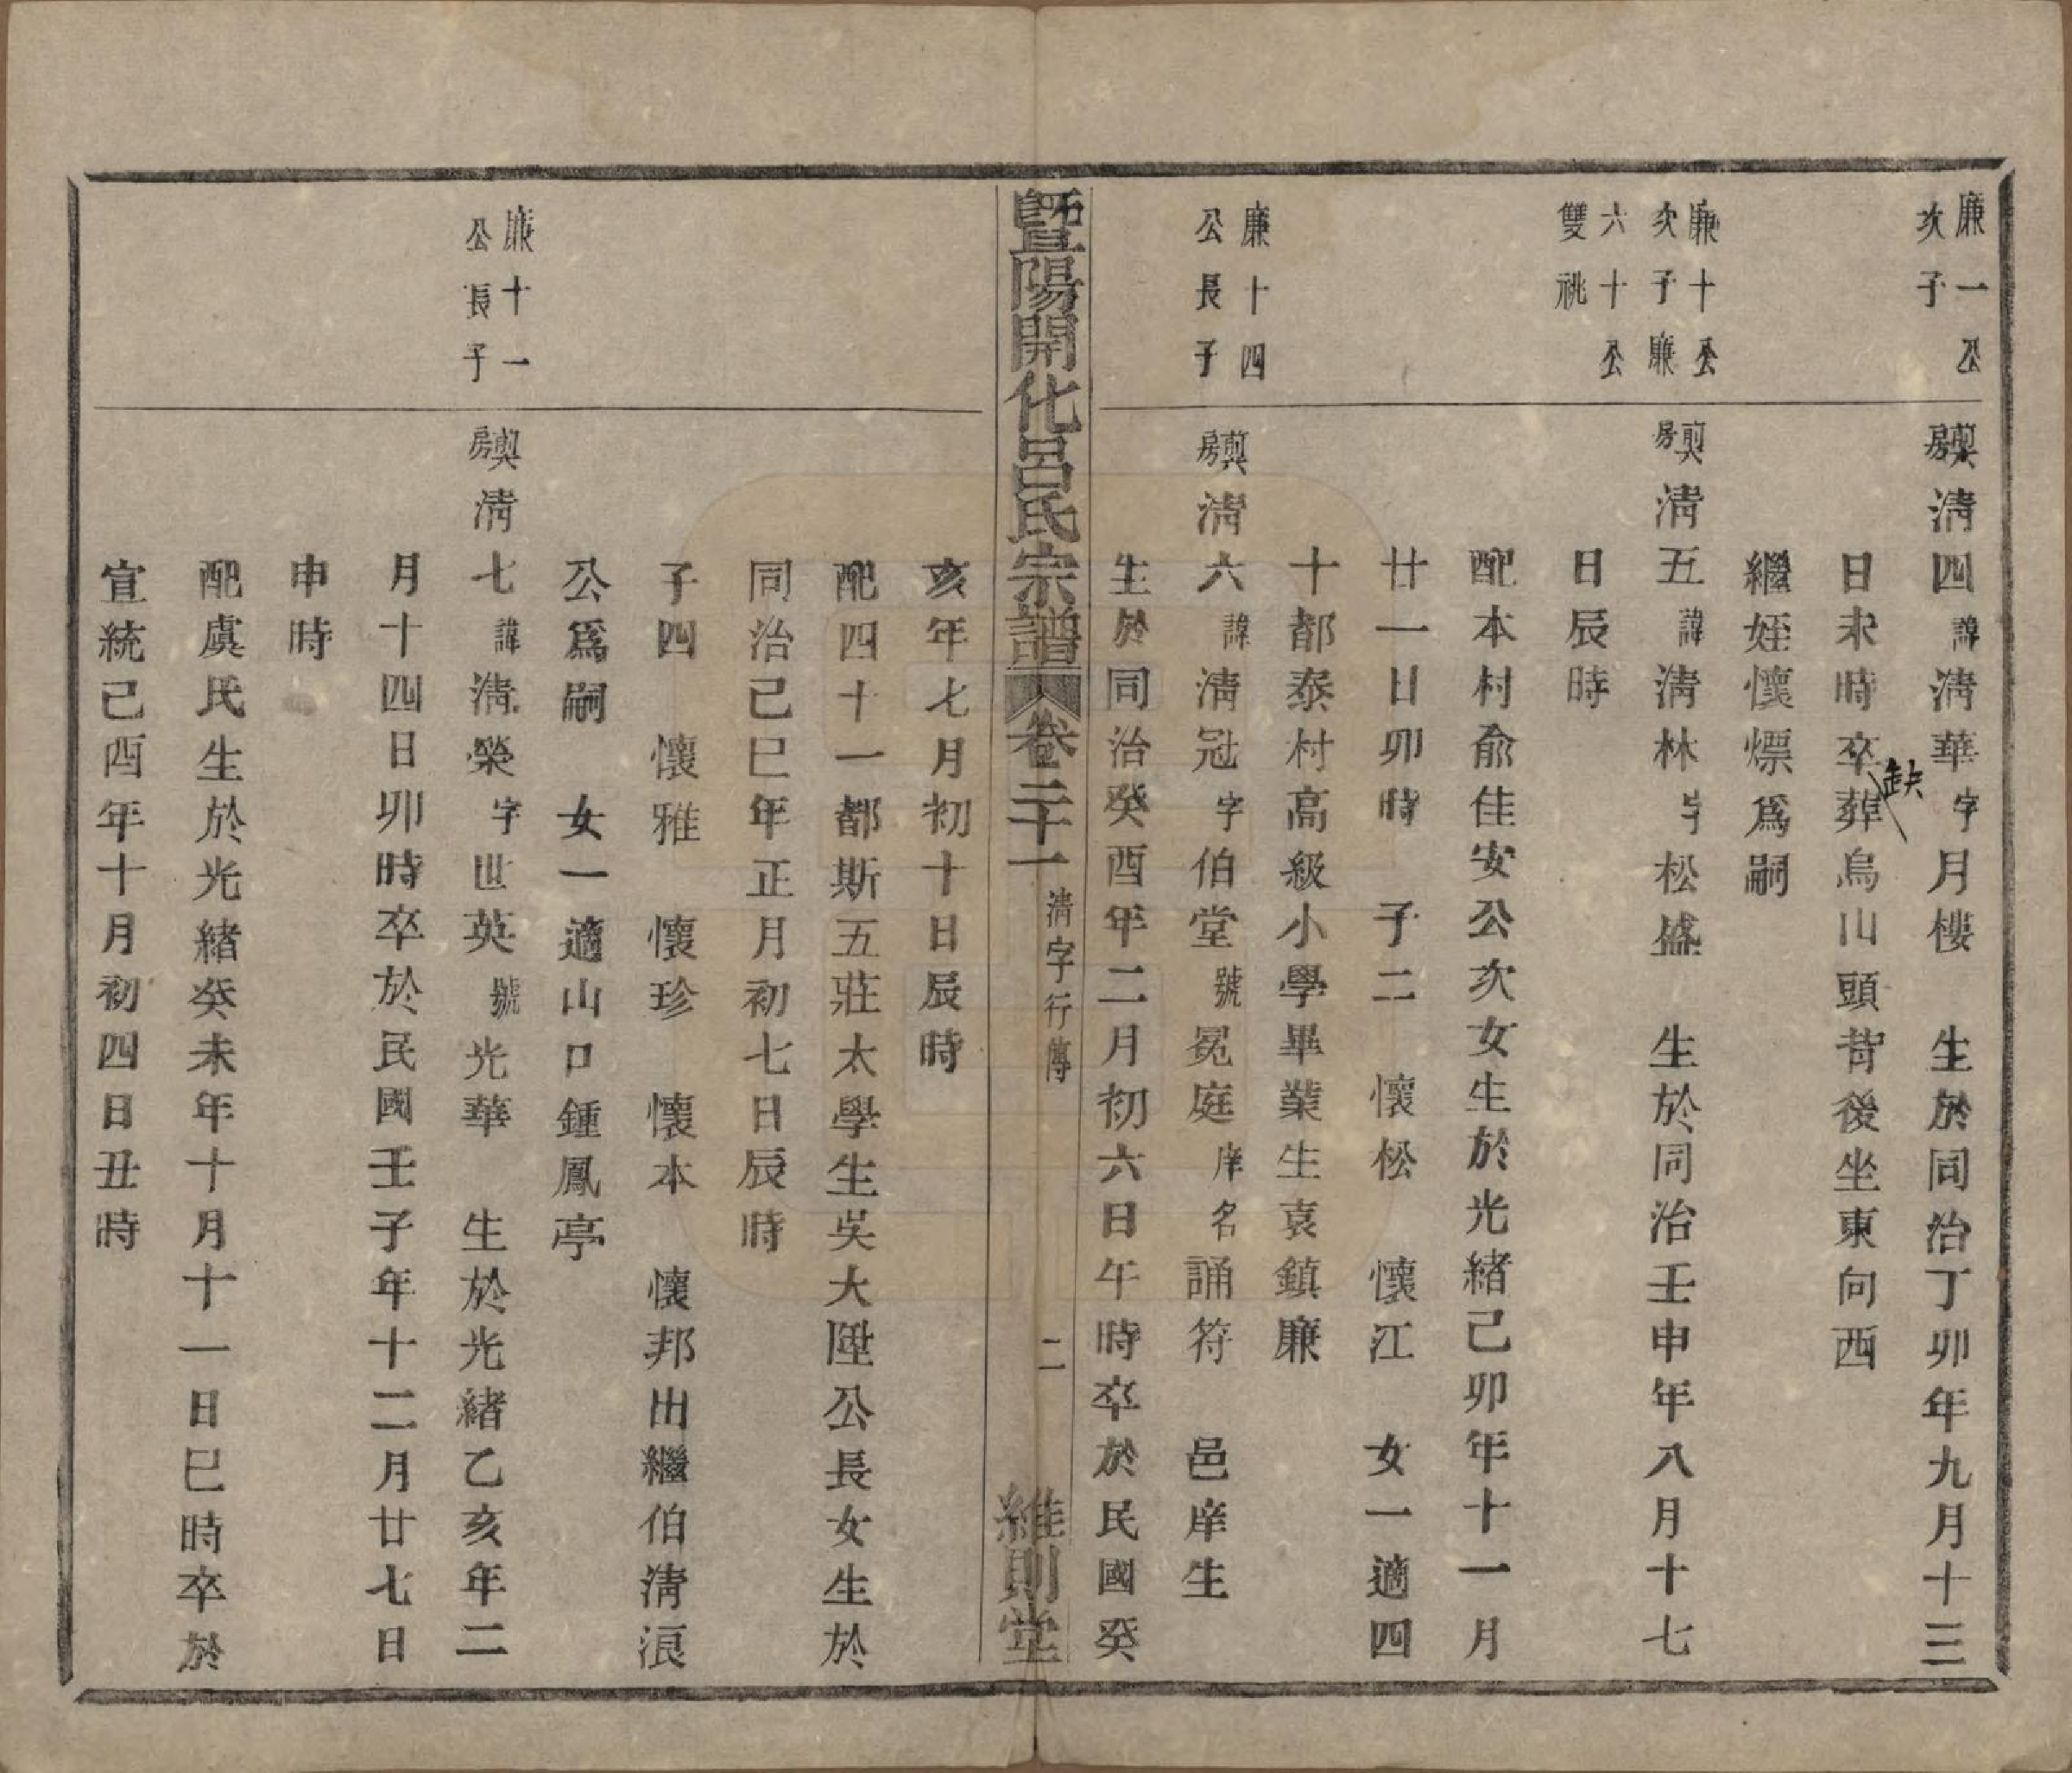 廉一公
次子
巽房清四諱清華字月樓　生於同治丁卯年九月十三
日未時卒缺葬烏山頭背後坐東向西
繼姪懷熛爲嗣
廉十公
次子廉
六十公
雙祧
巽房清五諱清林字松盛　生於同治壬申年八月十七
日辰時
配本村俞佳安公次女生於光緒己卯年十一月
廿一日卯時　子二　懷松　懷江　女一適四
十都泰村高級小學畢業生袁鎮廉
廉十四
公長子
巽房清六諱清冠字伯堂號冕庭庠名誦符　邑庠生
生於同治癸酉年二月初六日午時卒於民國癸
暨陽開化呂氏宗譜　卷二十一　清字行傳　二　維則堂
亥年七月初十日辰時
配四十一都斯五莊太學生吳大陞公長女生於
同治己巳年正月初七日辰時
子四　懷雅　懷珍　懷本　懷邦出繼伯清浪
公爲嗣　女一適山口鍾鳳亭
廉十一
公長子
巽房清七諱清榮字世英號光華　生於光緒乙亥年二
月十四日卯時卒於民國壬子年十二月廿七日
申時
配虞氏生於光緒癸未年十月十一日巳時卒於
宣統己酉年十月初四日丑時